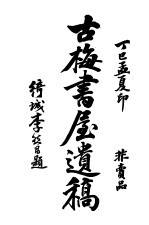 丁巳孟夏印
非賣品
古梅書屋遺稿
李
題